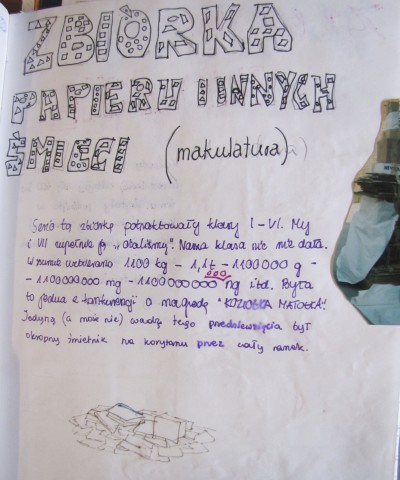 ZBIÓRKA
PAPIERU I INNYCH
ŚMIECI (makulatura)
tą zbiórkę potraktowały klasy I-VI. My
i VII zupełnie ją "olaliśmy". Nasza klasa nic nie dała.
W sumie uzbierano 1100 kg - 1,1t - 1100000 g -
- 1100000000 mg - 1100000000000 ng itd. Była
to jedna z konkurencji o nagrodę "KOZIOŁKA MATOŁKA".
Jedyną (a może nie) wadą tego przedsięwzięcia był
okropny śmietnik na korytarzu przez cały ranek.